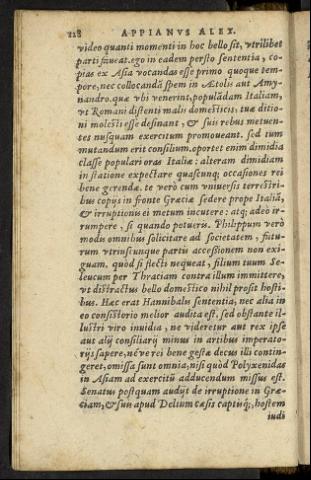 228 APPIANVS ALEX.
video quanti momenti in hoc bello sit, vtrilibet
parti faueat. ego in eadem persto sententia, co-
pias ex Asia vocandas esse primo quoque tem-
pore, nec collocandā spem in Ætolis aut Amy-
nandro. quæ vbi venerint, populādam Italiam,
vt Romani distenti malis domesticis, tuæ ditio-
ni molesti esse desinant, & suis rebus metuen-
tes nusquam exercitum promoueant. sed tum
mutandum erit consilium. oportet enim dimidia
classe populari oras Italiæ: alteram dimidiam
in statione expectare quascunq; occasiones rei
bene gerendæ. te verò cum vniuersis terrestri-
bus copijs in fronte Græciæ sedere prope Italiā,
& irruptionis ei metum incutere: atq; adeò ir-
rumpere, si quando potueris. Philippum verò
modis omnibus solicitare ad societatem, futu-
rum vtriusunque parti accessionem non exi-
guam. quòd si flecti nequeat, filium tuum Se-
leucum per Thraciam contra illum immittere,
vt distractus bello domestico nihil prosit hosti-
bus. Hæc erat Hannibalis sententia, nec alia in
eo consistorio melior audita est. sed obstante il-
lustri viro inuidia, ne videretur aut rex ipse
aut alij consiliarij minus in artibus imperato-
rijs sapere, né ve rei bene gestæ decus illi contin-
geret, omissa sunt omnia, nisi quòd Polyxenidas
in Asiam ad exercitū adducendum missus est.
Senatus postquam audijt de irruptione in Græ-
ciam, & suis apud Delium cæsis captisq;, hostem
iudi